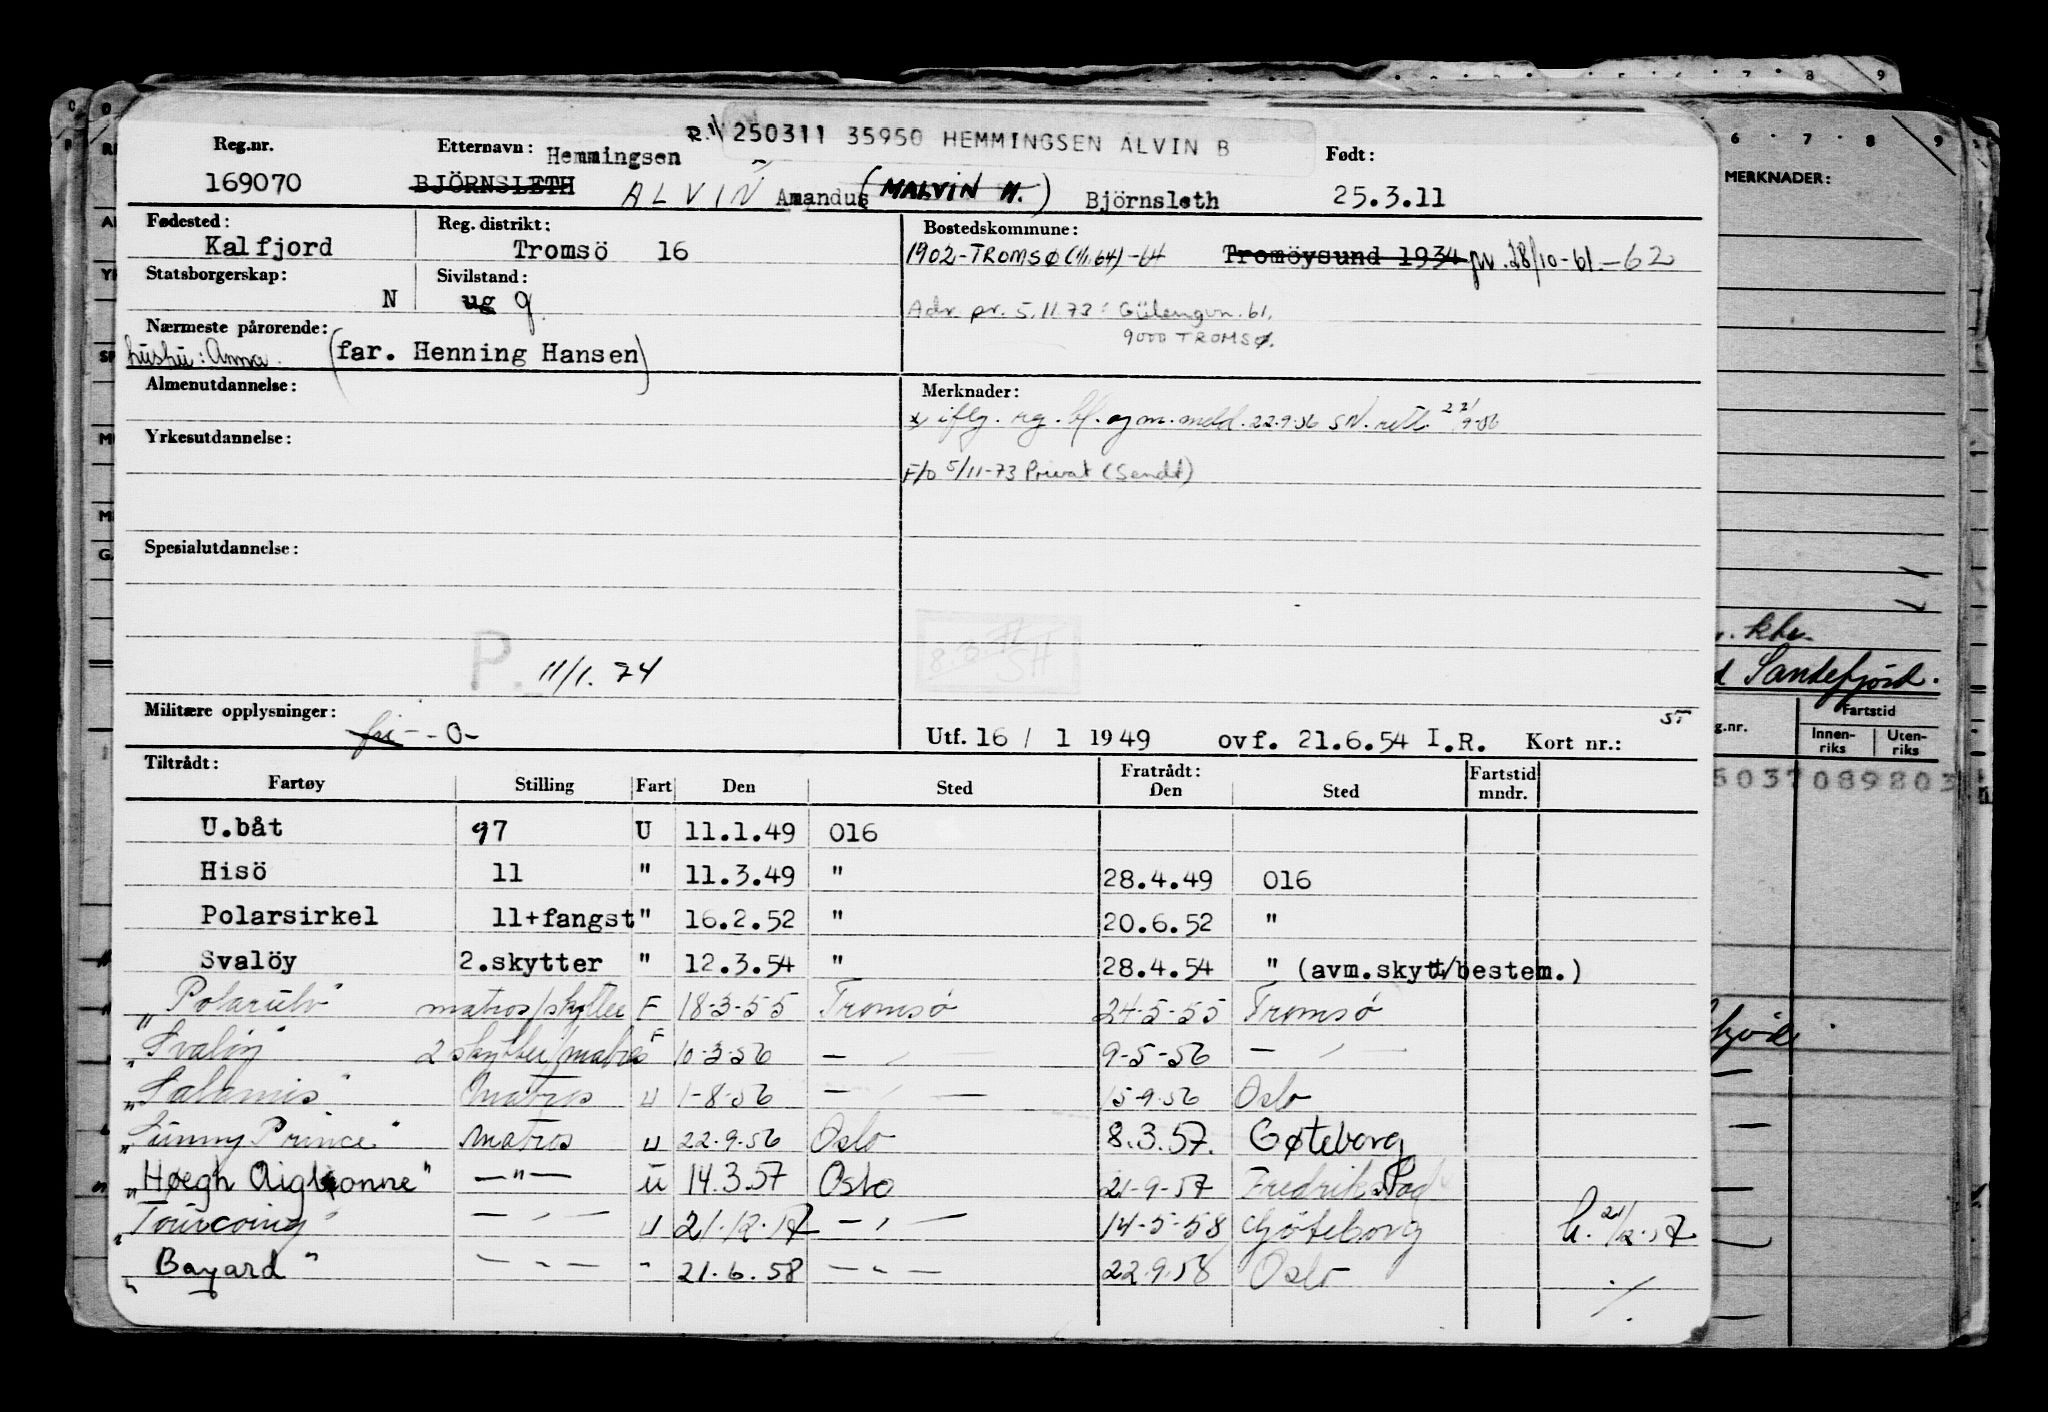 R.1/ 250311 35950 HEMMINGSEN ALVIN B
Reg.nr. Etternavn: Hemmingsen Født:
169070 BJÖRNSLETH ALVIN Amandus (MALVIN H.) Björnsleth 25.3.11
Fødested: Reg. distrikt: Bostedskommune:
Kalfjord Tromsö 16 1902-TROMSØ (1/1.64)-64 Tromöysund 1934 pr. 28/10-61.-62
Statsborgerskap: Sivilstand:
N ug g
Adr. pr. 5.11.73: Gülengvn. 61,
9000 TROMSØ.
Nærmeste pårørende:
hustru: Anna. (far. Henning Hansen)
Almenutdannelse: Merknader:
x iflg. rg. bl. og m. meld. 22.9.56 SN. rett. 22/9-56
Yrkesutdannelse:
F/O 5/11-73 Privat (Sendt)
Spesialutdannelse:
P. 11/1.74
Militære opplysninger:
fri - -0-
Utf. 16 / 1 1949 ovf. 21.6.54 I.R. Kort nr.:
Tiltrådt: Fratrådt: Fartstid
Fartøy Stilling Fart Den Sted Den Sted mndr.
U.båt 97 U 11.1.49 016
Hisö 11 " 11.3.49 " 28.4.49 016
Polarsirkel 11+fangst " 16.2.52 " 20.6.52 "
Svalöy 2.skytter " 12.3.54 " 28.4.54 " (avm.skytt/bestem.)
"Polarulv" matros/skytter F 18-3-55 Tromsø 24-5-55 Tromsø
"Svaløy" 2 skytter/matros F 10-3-56 - " - 9-5-56 - " -
"Salamis" Matros U 1-8-56 - " - 15-9-56 Oslo
"Sunny Prince" matros U 22.9.56 Oslo 8.3.57. Gøteborg
"Høegh Aiglonne" -"- U 14.3.57 Oslo 21-9-57 Fredrikstad
"Tourcoing" -"- U 21.12.57 -"- 14-5-58 Gøteborg h. 21/12.57
"Bayard" -"- " 21.6.58 -"- 22.9.58 Oslo ./.
6 7 8 9
MERKNADER:
Sandefjord.
Fartstid
Innen-
riks
Uten-
riks